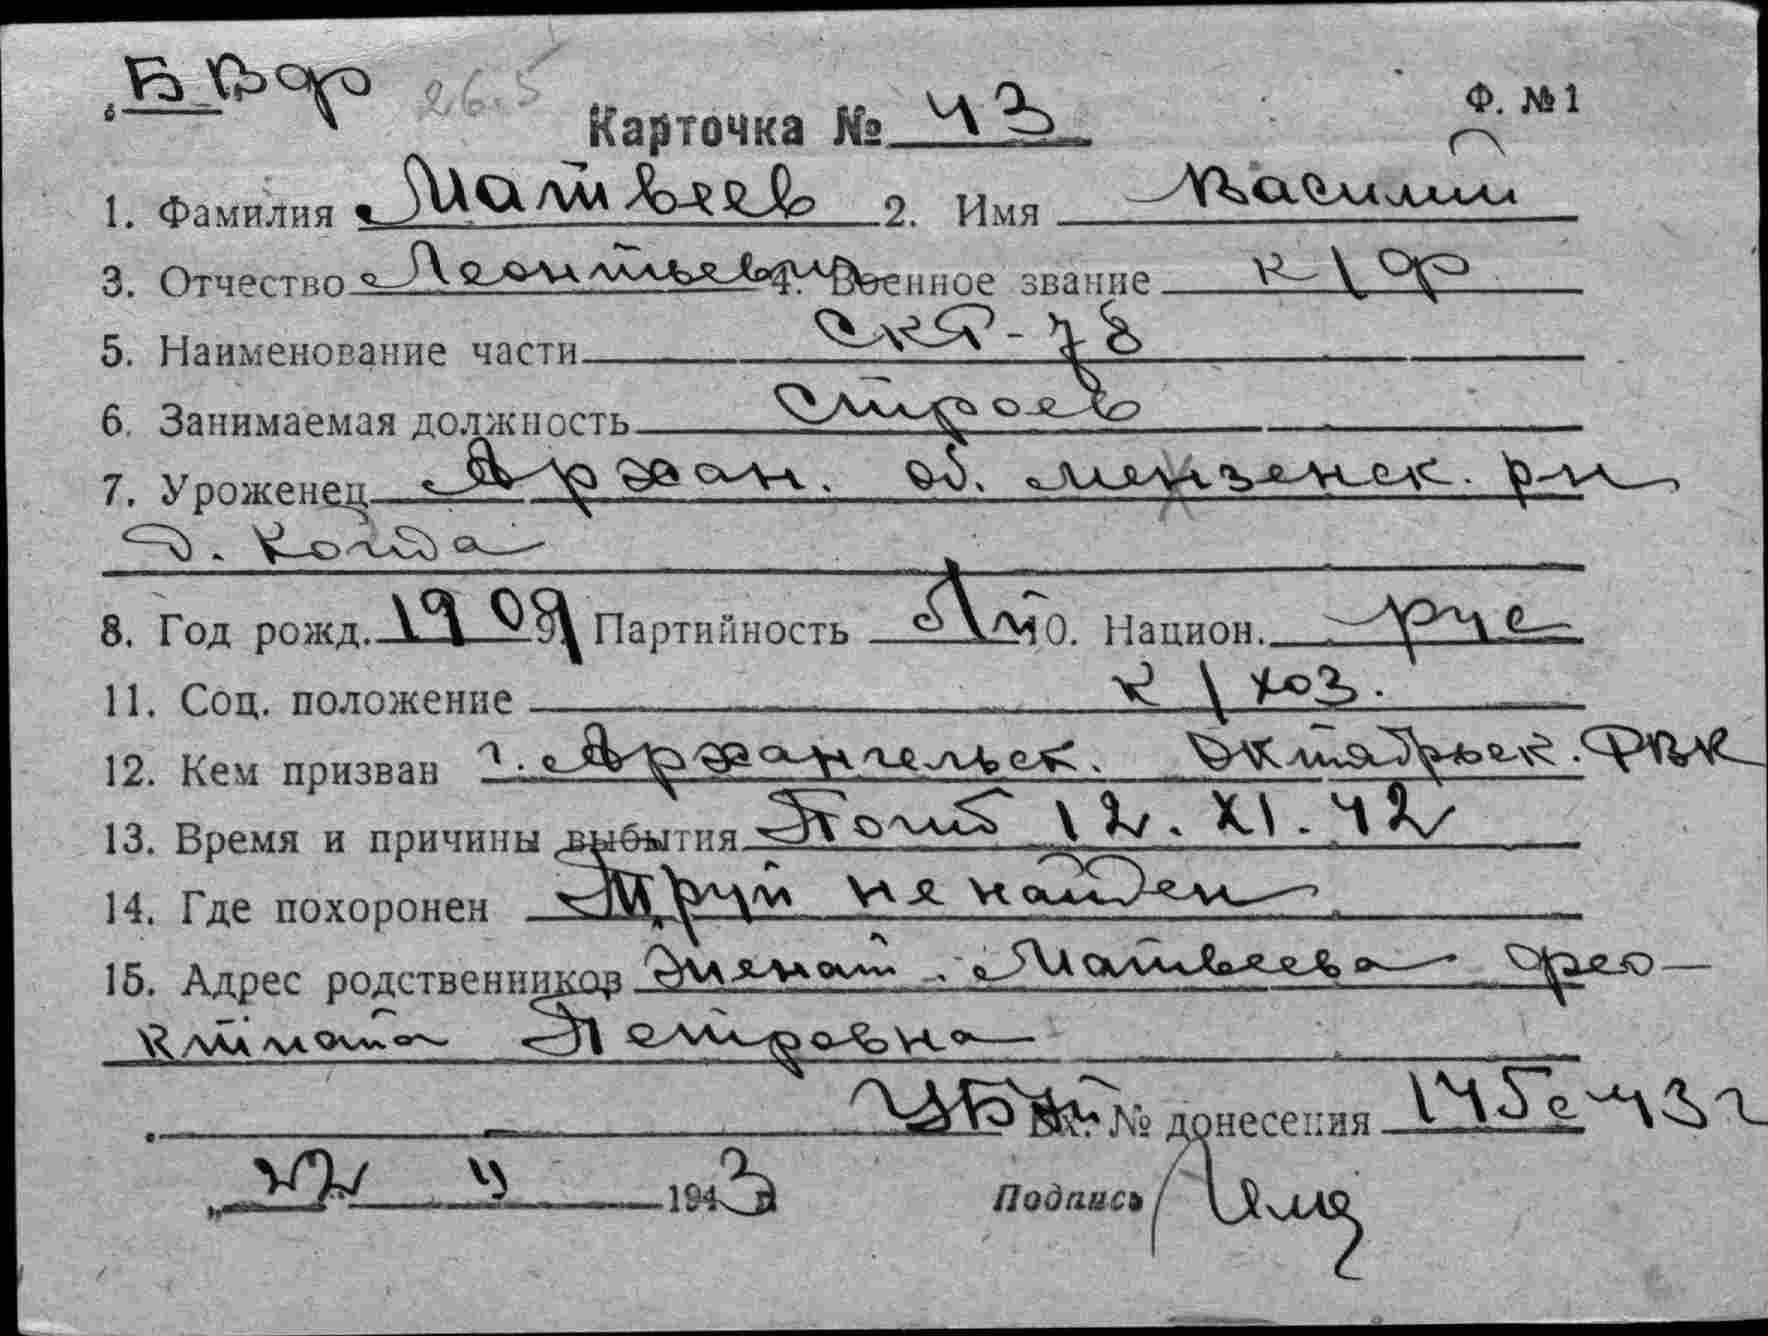 БВф 26.5
Карточка № 43 Ф. №1
1. Фамилия Матвеев 2. Имя Василий
3. Отчество Леонтьевич 4. Военное звание к/ф
5. Наименование части СКР-78
6. Занимаемая должность Строев
7. Уроженец Архан. об. мензенск. р-н
д. Койда
8. Год рожд. 1909 9. Партийность 10. Национ. рус
11. Соц. положение к/хоз.
12. Кем призван г. Архангельск. Октябрьск. РВК
13. Время и причины выбытия Погиб 12.XI.42
14. Где похоронен Труп не найден
15. Адрес родственников Женат. Матвеева Фео-
Петровна
Вх. № донесения 145с 43г
22 4 1943 Подпись